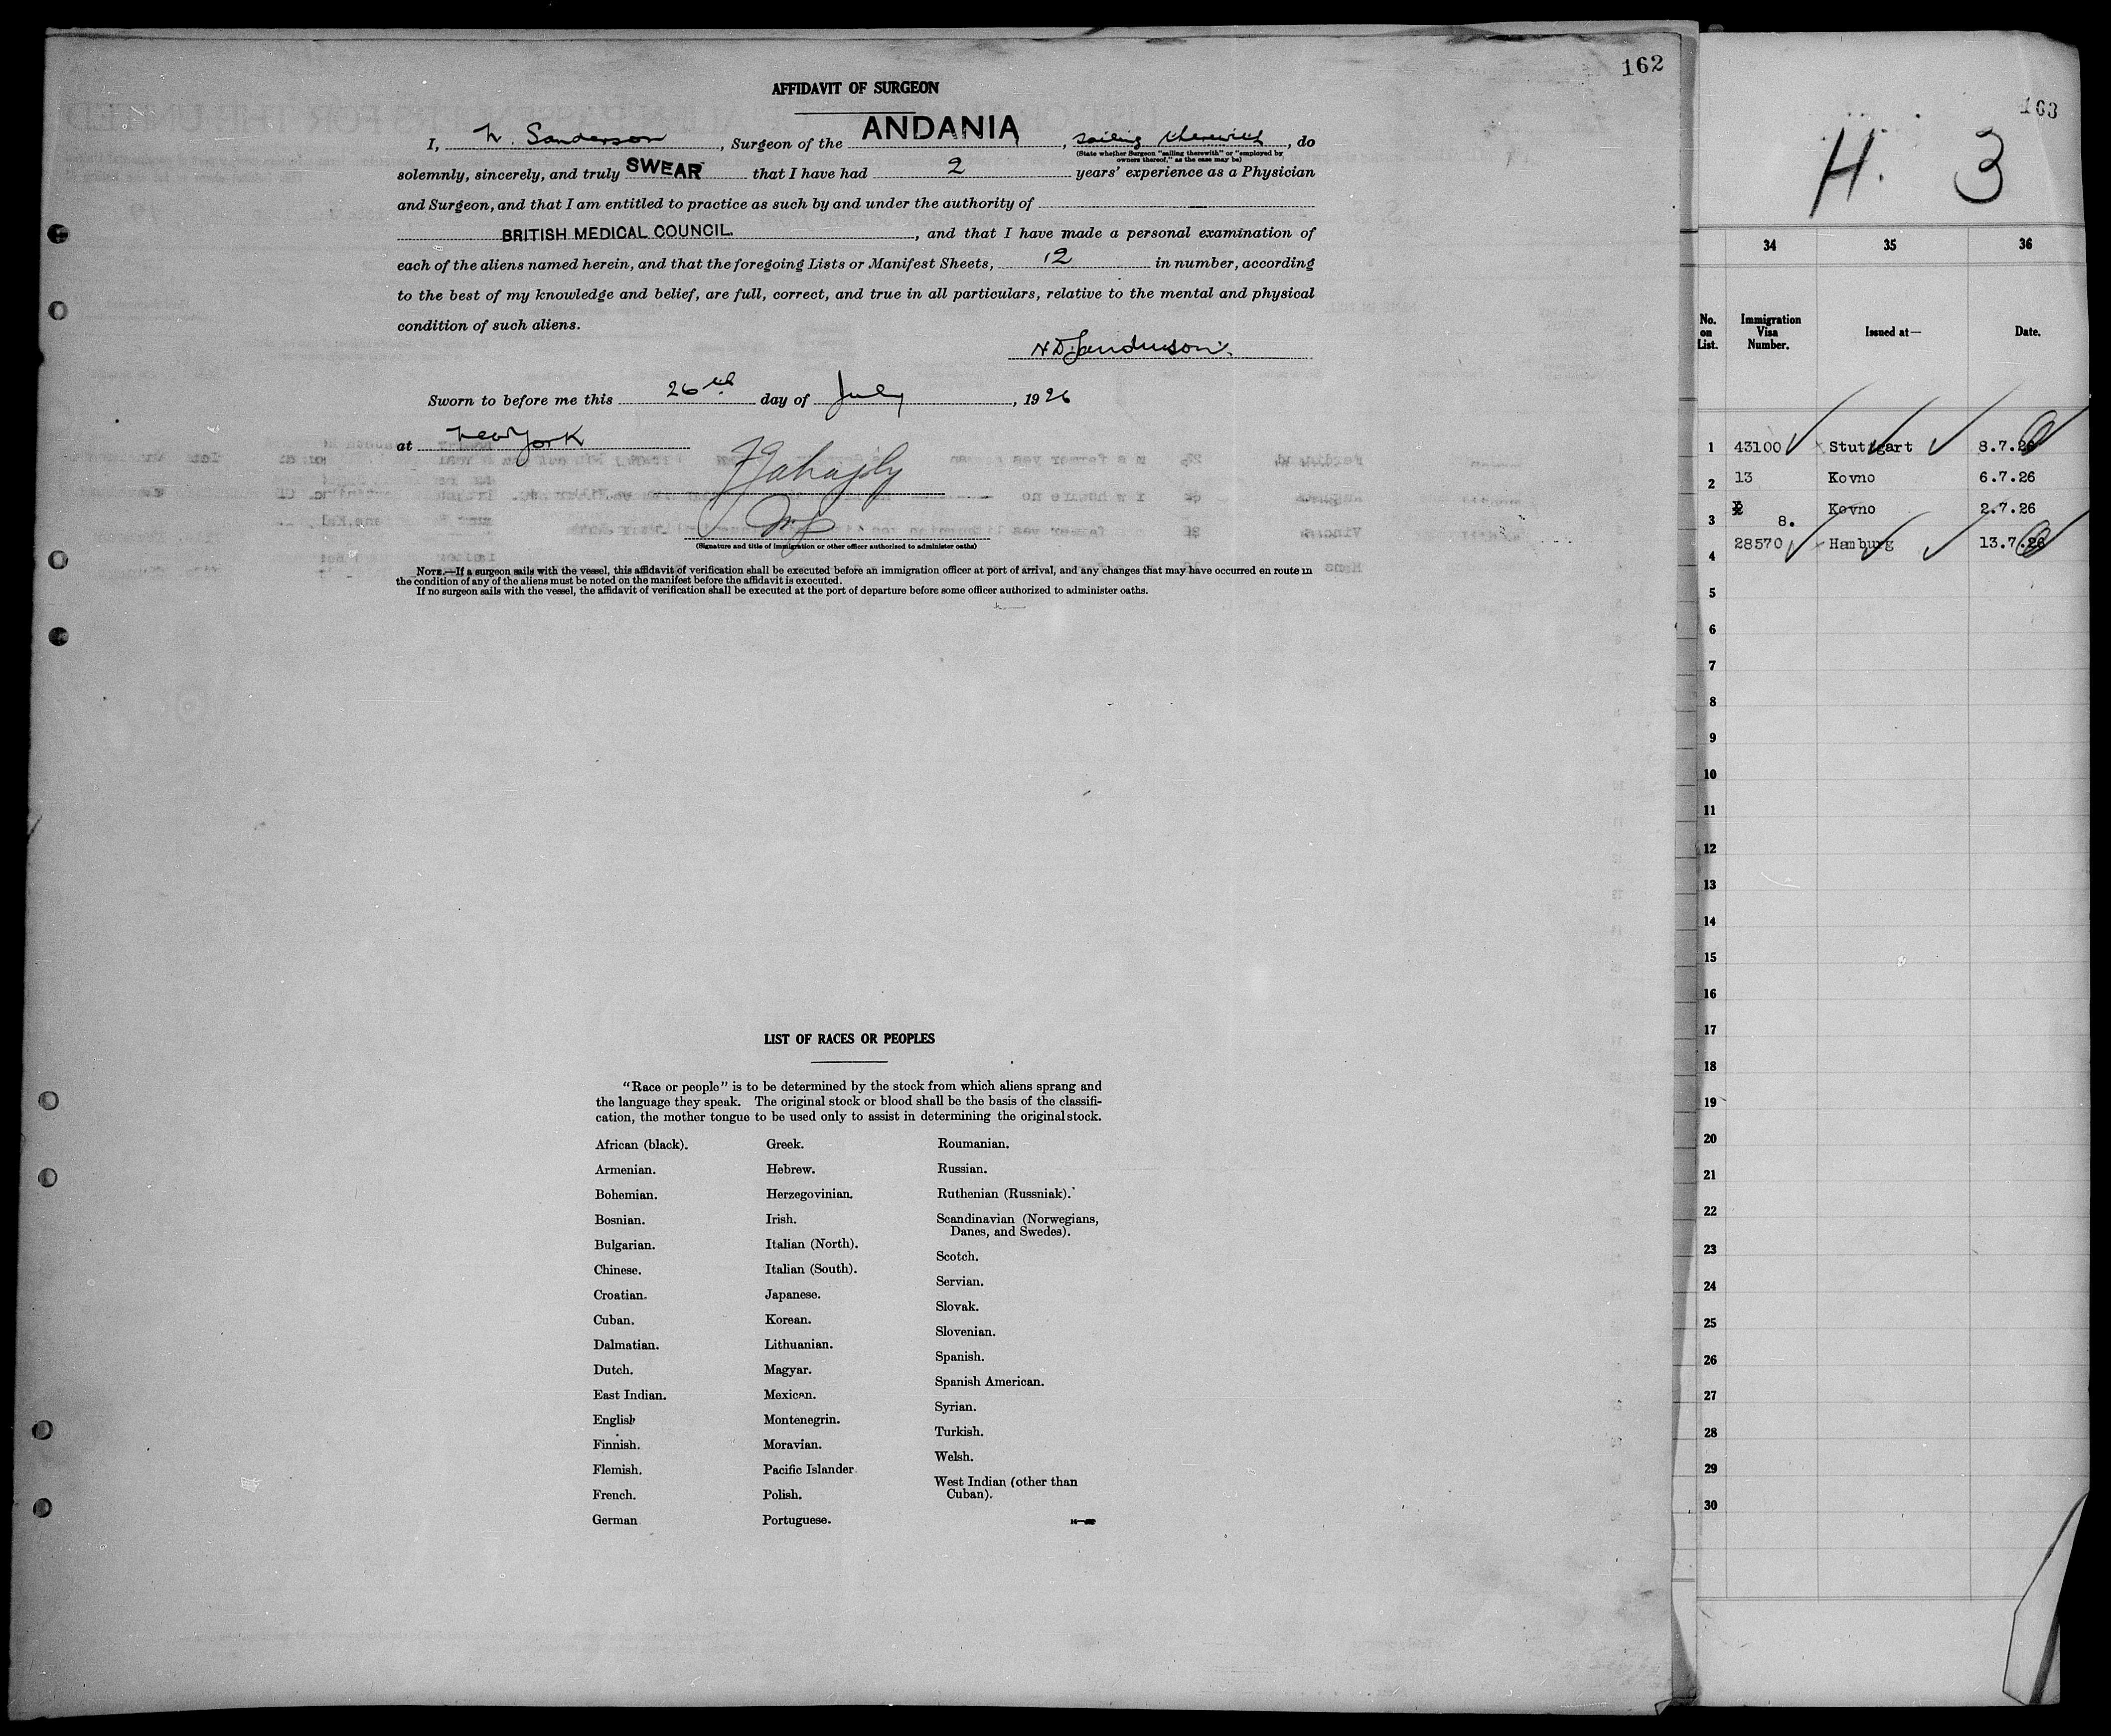 162
AFFIDAVIT OF SURGEON
I, N. Sanderson, Surgeon of the ANDANIA, sailing therewith, do
(State whether Surgeon "sailing therewith" or "employed by
owners thereof," as the case may be)
solemnly, sincerely, and truly SWEAR that I have had 2 years' experience as a Physician
and Surgeon, and that I am entitled to practice as such by and under the authority of
BRITISH MEDICAL COUNCIL., and that I have made a personal examination of
each of the aliens named herein, and that the foregoing Lists or Manifest Sheets, 12 in number, according
to the best of my knowledge and belief, are full, correct, and true in all particulars, relative to the mental and physical
condition of such aliens.
N D Sanderson.
Sworn to before me this 26th day of July, 1926
at New York
(Signature and title of immigration or other officer authorized to administer oaths)
NOTE.—If a surgeon sails with the vessel, this affidavit of verification shall be executed before an immigration officer at port of arrival, and any changes that may have occurred en route in
the condition of any of the aliens must be noted on the manifest before the affidavit is executed.
If no surgeon sails with the vessel, the affidavit of verification shall be executed at the port of departure before some officer authorized to administer oaths.
LIST OF RACES OR PEOPLES
"Race or people" is to be determined by the stock from which aliens sprang and
the language they speak. The original stock or blood shall be the basis of the classifi-
cation, the mother tongue to be used only to assist in determining the original stock.
African (black).
Armenian.
Bohemian.
Bosnian.
Bulgarian.
Chinese.
Croatian.
Cuban.
Dalmatian.
Dutch.
East Indian.
English
Finnish.
Flemish.
French.
German
Greek.
Hebrew.
Herzegovinian.
Irish.
Italian (North).
Italian (South).
Japanese.
Korean.
Lithuanian.
Magyar.
Mexican.
Montenegrin.
Moravian.
Pacific Islander
Polish.
Portuguese.
Roumanian.
Russian.
Ruthenian (Russniak).
Scandinavian (Norwegians,
Danes, and Swedes).
Scotch.
Servian.
Slovak.
Slovenian.
Spanish.
Spanish American.
Syrian.
Turkish.
Welsh.
West Indian (other than
Cuban).
163
H. 3
34 35 36
No. on List. Immigration Visa Number. Issued at— Date.
1 43100 Stuttgart 8.7.26
2 13 Kovno 6.7.26
3 8. Kovno 2.7.26
4 28570 Hamburg 13.7.26
5
6
7
8
9
10
11
12
13
14
15
16
17
18
19
20
21
22
23
24
25
26
27
28
29
30